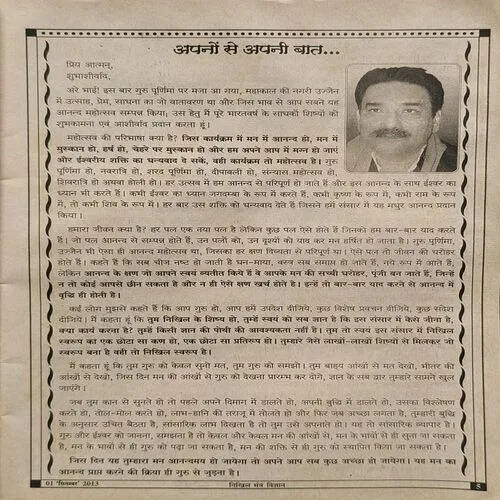 अपनों से अपनी बात...
प्रिय आत्मन्,
शुभाशीर्वाद,
अरे भाई! इस बार गुरु पूर्णिमा पर मजा आ गया, महाकाल की नगरी उज्जैन
में उत्साह, प्रेम, साधना का जो वातावरण था और जिस भाव से आप सबने यह
आनन्द महोत्सव सम्पन्न किया, उस हेतु मैं पूरे भारतवर्ष के साधकों शिष्यों को
शुभकामना एवं आशीर्वाद प्रदान करता हूं।
महोत्सव की परिभाषा क्या है? जिस कार्यक्रम में मन में आनन्द हो, मन में
मुस्कान हो, हर्ष हो, चेहरे पर मुस्कान हो और हम अपने आप में मग्न हो जाएं
और ईश्वरीय शक्ति का धन्यवाद दे सकें, वही कार्यक्रम तो महोत्सव है। गुरु
पूर्णिमा हो, नवरात्रि हो, शरद पूर्णिमा हो, दीपावली हो, संन्यास महोत्सव हो,
शिवरात्रि हो अथवा होली हो। हर उत्सव में हम आनन्द से परिपूर्ण हो जाते हैं और इस आनन्द के साथ ईश्वर का
ध्यान भी करते हैं। कभी ईश्वर का ध्यान जगदम्बा के रूप में करते हैं, कभी कृष्ण के रूप में, कभी राम के रूप
में, तो कभी शिव के रूप में। हर बार उस शक्ति को धन्यवाद देते हैं जिसने हमें संसार में यह मधुर आनन्द प्रदान
किया।
हमारा जीवन क्या है? हर पल एक नया पल है लेकिन कुछ पल ऐसे होते हैं जिनको हम बार-बार याद करते
हैं। जो पल आनन्द से सम्पन्न होते हैं, उन पलों को, उन दृश्यों को याद कर मन हर्षित हो जाता है। गुरु पूर्णिमा,
उज्जैन भी ऐसा ही आनन्द महोत्सव था, जिसका हर क्षण दिव्यता से परिपूर्ण था। ऐसे पल तो जीवन की धरोहर
होते हैं। कहते हैं कि सब चीज नष्ट हो जाती है धन-माया, वस्त्र सब समाप्त हो जाते हैं, नये रूप में आते हैं,
लेकिन आनन्द के क्षण जो आपने स्वयं व्यतीत किये हैं वे आपके मन की सच्ची धरोहर, पूंजी बन जाते हैं, जिन्हें
न तो कोई आपसे छीन सकता है और न ही ऐसे क्षण खर्च होते है। इन्हें तो बार-बार याद करने से आनन्द में
वृद्धि ही होती है।
कई लोग मुझसे कहते हैं कि आप गुरु हो, आप हमें उपदेश दीजिये, कुछ विशेष प्रवचन दीजिये, कुछ संदेश
दीजिये। मैं कहता हूं कि तुम निखिल के शिष्य हो, तुम्हें स्वयं को सब ज्ञान है कि इस संसार में कैसे जीना है,
क्या कार्य करना है? तुम्हें किसी ज्ञान की पोथी की आवश्यकता नहीं है। तुम तो स्वयं इस संसार में निखिल
स्वरूप का एक छोटा सा कण हो, एक छोटा सा प्रतिरूप हो। तुम्हारे जैसे लाखों-लाखों शिष्यों से मिलकर जो
स्वरूप बना है वही तो निखिल स्वरूप है।
मैं कहता हूं कि तुम गुरु को केवल सुनो मत, तुम गुरु को समझो। तुम बाह्य आंखों से मत देखो, भीतर की
आंखों से देखो, जिस दिन मन की आंखों से गुरु को देखना प्रारम्भ कर दोगे, ज्ञान के सब द्वार तुम्हारे सामने खुल
जाएंगे।
जब तुम कान से सुनते हो तो पहले अपने दिमाग में डालते हो, अपनी बुद्धि में डालते हो, उसका विश्लेषण
करते हो, तोल-मोल करते हो, लाभ-हानि की तराजू में तोलते हो और फिर जब अच्छा लगता है, तुम्हारी बुद्धि
के अनुसार उचित बैठता है, सांसारिक लाभ दिखता है तो तुम उसे अपनाते हो। यह तो सांसारिक व्यापार है।
गुरु और ईश्वर को जानना, समझना है तो केवल और केवल मन की आंखों से, मन के भावों से ही सुना जा सकता
है, मन के भावों से ही गुरु को पढ़ा जा सकता है, मन की शक्ति से ही गुरु को स्थापित किया जा सकता है।
जिस दिन यह तुम्हारा मन आनन्दमय हो जायेगा तो अपने आप सब कुछ अच्छा हो जायेगा। यह मन का
आनन्द प्राप्त करने की क्रिया ही गुरु से जुड़ना है।
01 'सितम्बर' 2013 निखिल मंत्र विज्ञान 5